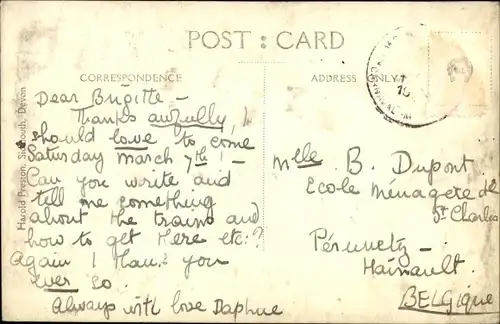 POST : CARD
CORRESPONDENCE
ADDRESS ONLY
Harold Preston, Sidmouth, Devon
Dear Brigitte -
Thanks awfully, I
should love to come
Saturday March 7th! -
Can you write and
tell me something
about the trains and
how to get there etc:?
Again I thank you
ever so.
Always with love Daphne
Mlle B. Dupont
Ecole Ménagère de
St Charles
Péruwelz -
Hainault.
BELGIQUE